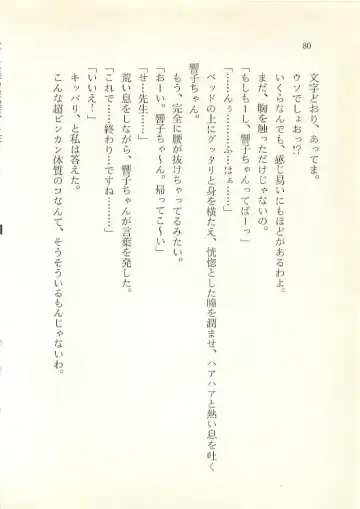 80
文字どおり、あってま。
ウソでしょおっ!?
いくらなんでも、感じ易いにもほどがあるわよ。
まだ、胸を触っただけじゃないの。
「もしもーし、響子ちゃんってばーっ」
「……んぅ…………ふ…はぁ……」
響子ちゃん。
ベッドの上にグッタリと身を横たえ、恍惚とした瞳を潤ませ、ハアハアと熱い息を吐く
もう、完全に腰が抜けちゃってるみたい。
「おーい。響子ちゃ～ん。帰ってこ～い」
「せ…先生……」
荒い息をしながら、響子ちゃんが言葉を発した。
「これで……終わり…ですね………」
「いいえ！」
キッパリ、と私は答えた。
こんな超ビンカン体質のコなんて、そうそういるもんじゃないわ。